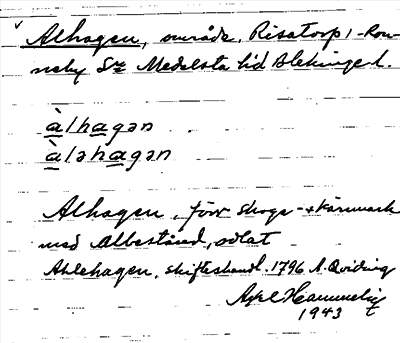 Alhagen, område, Risatorp, Ron-
neby Sn Medelsta hd Blekinge l.
àlhagən
àləhagən
Alhagen, förr skogs- o kärrmark
med albestånd, odlat
Ahlehagen, skifteshandl. 1796 A. Qviding
Axel
1943